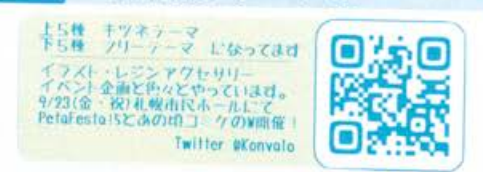 上5種 キツネテーマ
下5種 フリーテーマ になってます
イラスト・レジンアクセサリー
イベント企画と色々とやっています。
9/23(金・祝)札幌市民ホールにて
PetaFesta!5とあの頃コーケのW開催!
Twitter @Konvalo